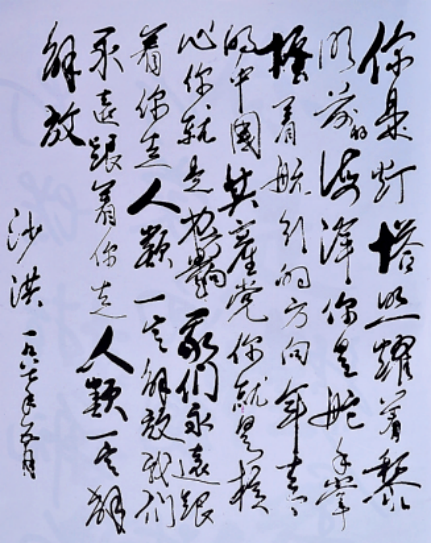 你是灯塔照耀着黎
明前的海洋你是舵手掌
握着航行的方向年青
的中國共産党你就是核
心你就是方嚮我们永遠跟
着你走人類一定解放我们
永遠跟着你走人類一定解
解放
沙洪一九八七年五月